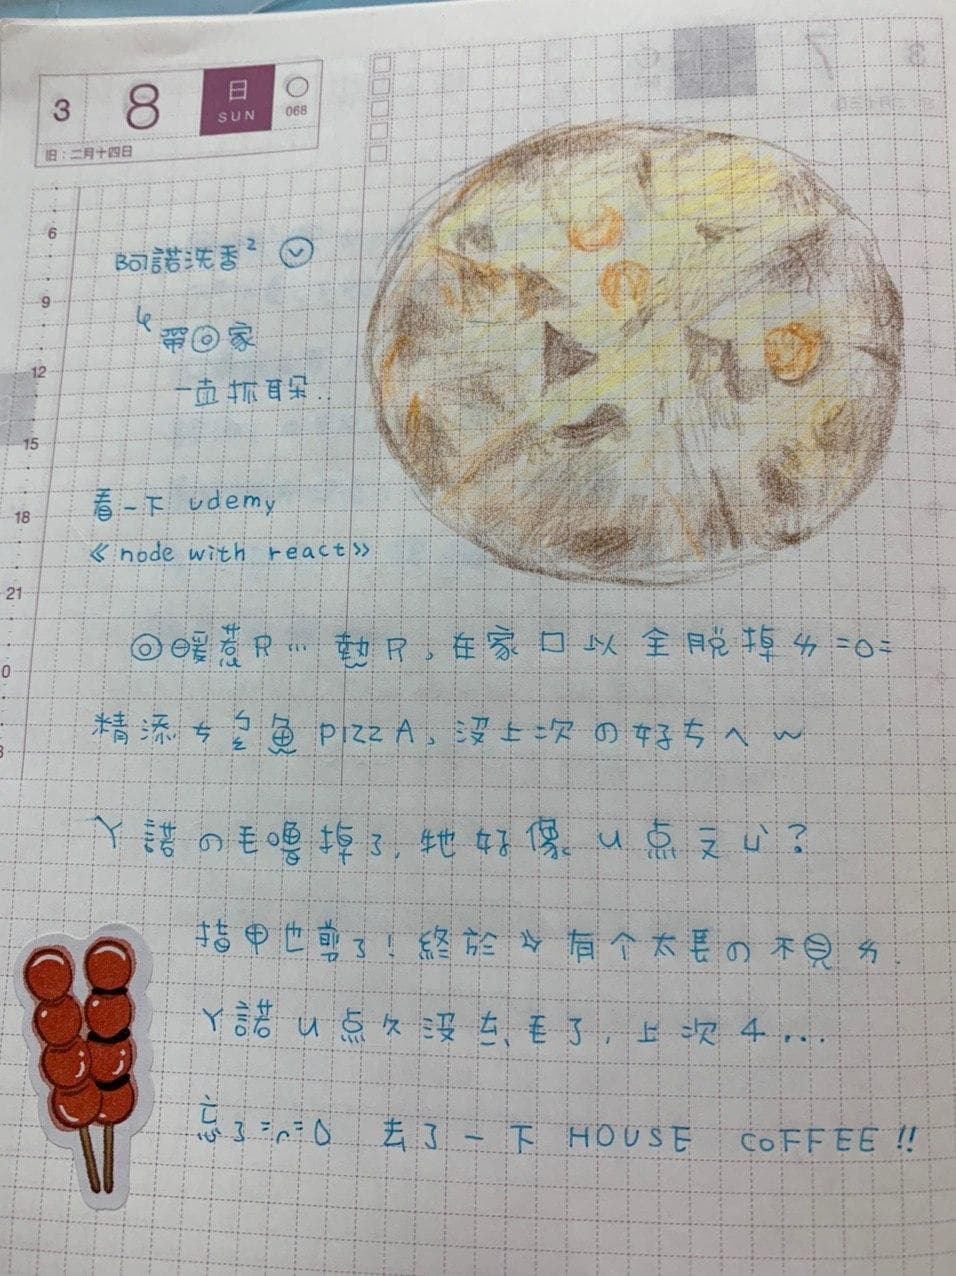 3 8 日 SUN 068
旧：二月十四日
6
9
12
15
18
21
0
3
阿諾洗香²
帶回家
一直抓耳朵..
看一下 udemy
《node with react》
暖 ... 熱 R, 在家口以全脫掉ㄌ =0=
魚 PIZZA, 沒上次の好ㄘへ~
ㄚ諾の毛嚕掉了, 牠好像ㄩ点ㄡ心?
指甲也剪了! 終於 有个太長の不見ㄌ.
ㄚ諾ㄩ点久沒去毛了, 上次 4...
忘了=n=0 去了一下 HOUSE COFFEE!!